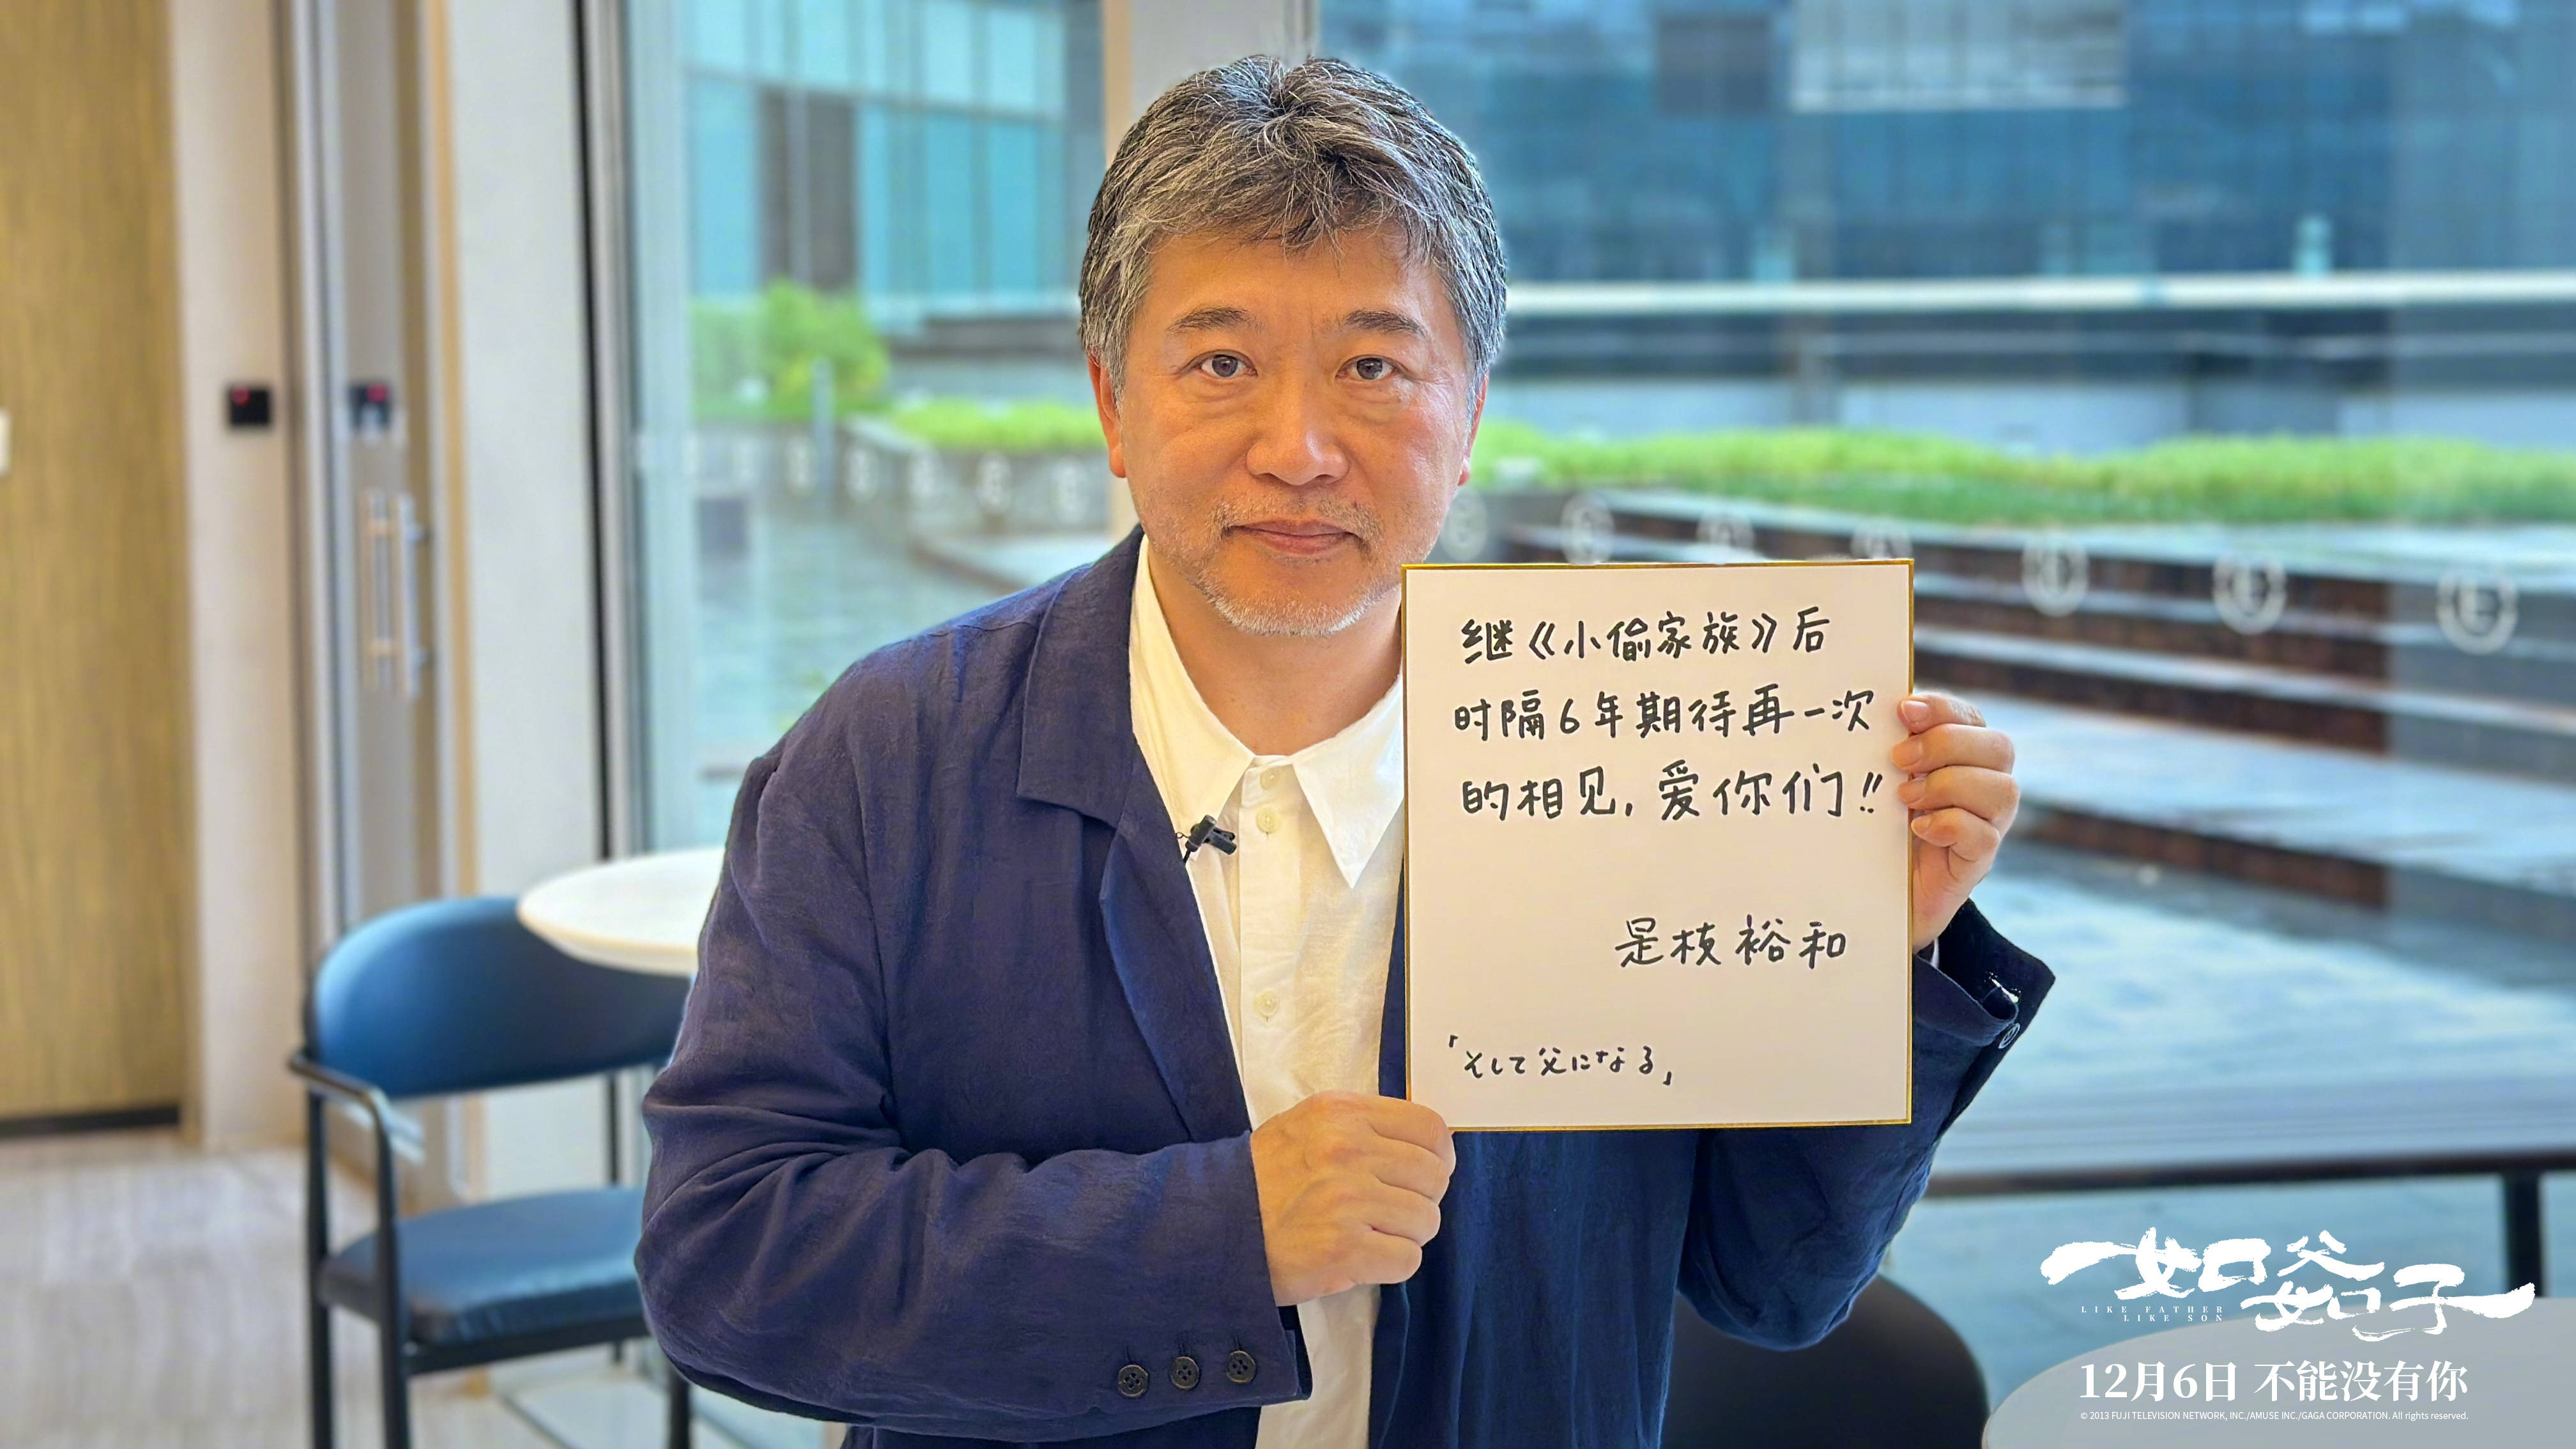 继《小偷家族》后
时隔6年期待再一次
的相见，爱你们!!
是枝裕和
「そして父になる」
如父如子
LIKE FATHER
LIKE SON
12月6日 不能没有你
© 2013 FUJI TELEVISION NETWORK, INC./AMUSE INC./GAGA CORPORATION. All rights reserved.